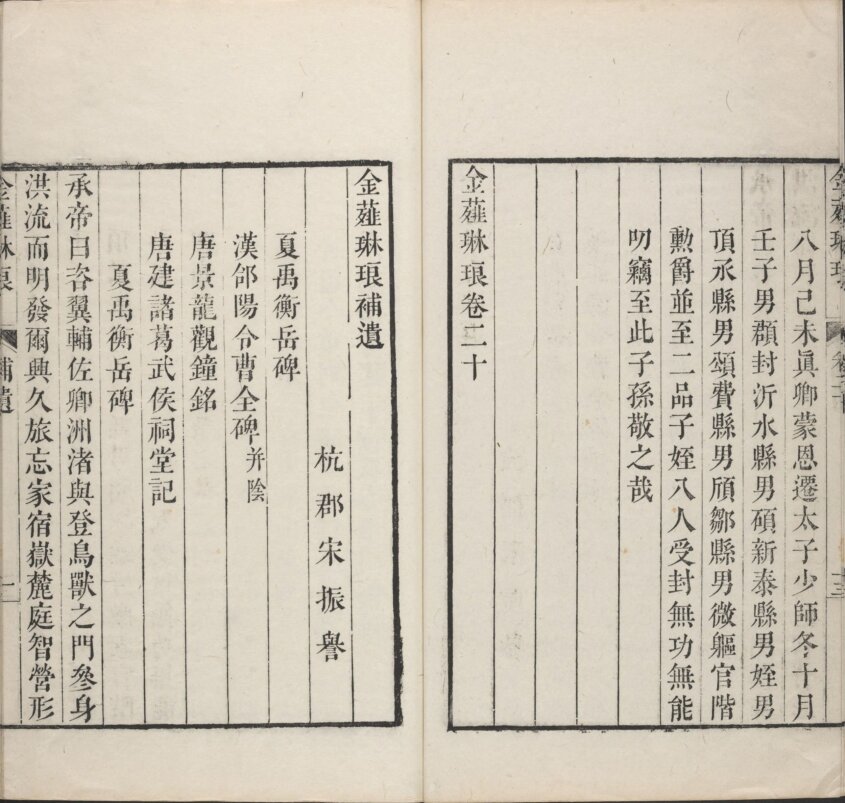 金薤琳琅
卷二十
十三
八月己未眞卿蒙恩遷太子少師冬十月
壬子男頵封沂水縣男碩新泰縣男姪男
頂承縣男頌費縣男頎鄒縣男微軀官階
勲爵並至二品子姪八人受封無功無能
叨竊至此子孫敬之哉
金薤琳琅卷二十
金薤琳琅補遺
杭郡宋振譽
夏禹衡岳碑
漢郃陽令曹全碑并陰
唐景龍觀鐘銘
唐建諸葛武侯祠堂記
夏禹衡岳碑
承帝曰咨翼輔佐卿洲渚與登鳥獸之門參身
洪流而明發爾興久旅忘家宿嶽麓庭智營形
金薤琳琅
補遺
一